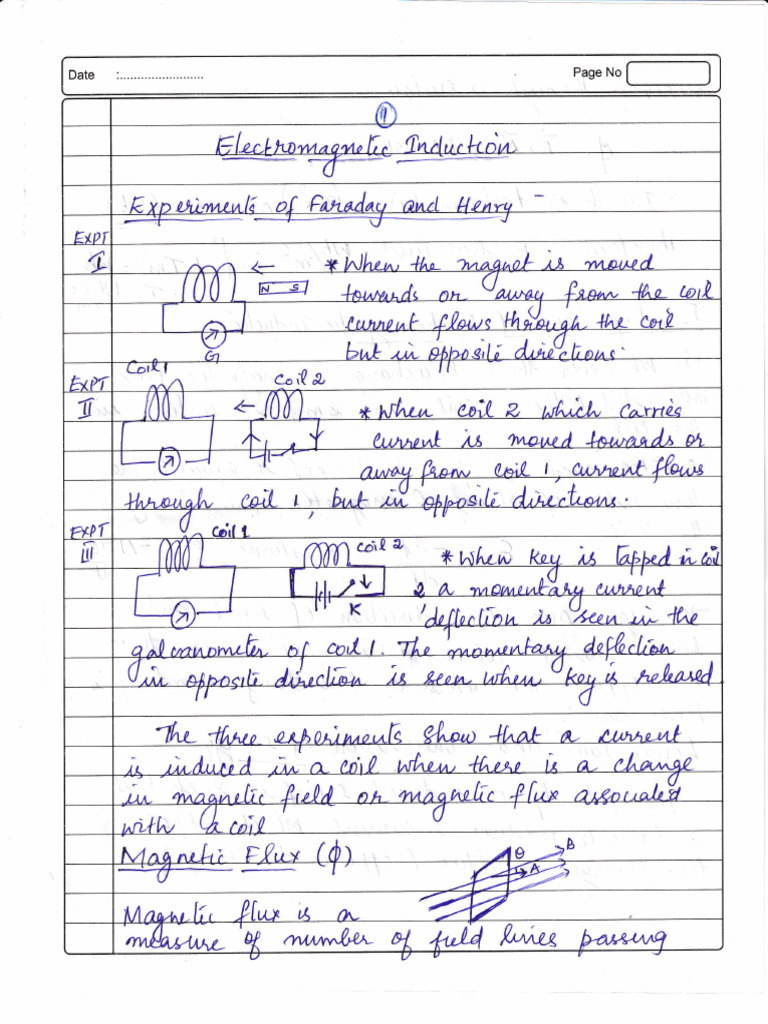 Date :........................ Page No
1
Electromagnetic Induction
Experiments of Faraday and Henry -
EXPT
I
N S
G
* When the magnet is moved
towards or away from the coil
current flows through the coil
but in opposite directions.
EXPT
II
Coil 1
Coil 2
* When coil 2 which carries
current is moved towards or
away from coil 1, current flows
through coil 1, but in opposite directions.
EXPT
III
Coil 1
Coil 2
K
* When key is tapped in coil
2 a momentary current
deflection is seen in the
galvanometer of coil 1. The momentary deflection
in opposite direction is seen when key is released
The three experiments show that a current
is induced in a coil when there is a change
in magnetic field or magnetic flux associated
with a coil
Magnetic Flux (ϕ)
θ
B
A
Magnetic flux is a
measure of number of field lines passing